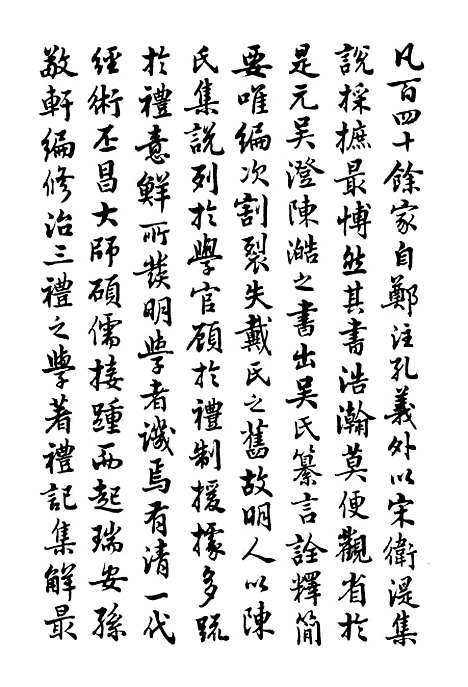 凡百四十餘家自鄭注孔義外以宋衛湜集
說採摭最博然其書浩瀚莫便觀省於
是元吳澄陳澔之書出吳氏纂言詮釋簡
要唯編次割裂失戴氏之舊故明人以陳
氏集說列於學官顧於禮制援據多疏
於禮意鮮所發明學者譏焉有清一代
經術丕昌大師碩儒接踵而起瑞安孫
敬軒編修治三禮之學著禮記集解最